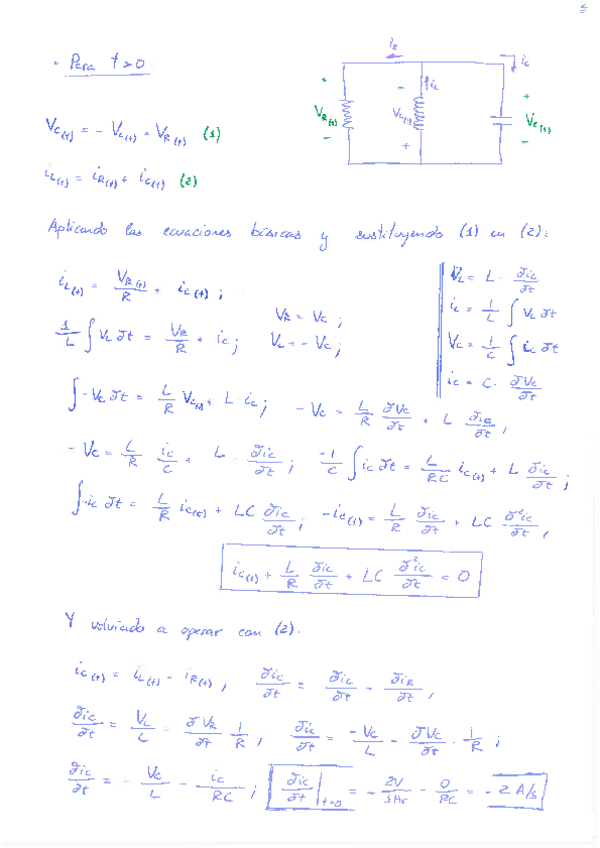 • Para t>0
i_R
i_C
+
V_R(t)
-
-
V_L(t)
+
i_L
+
V_C(t)
-
V_C(t) = - V_C(t) = V_R(t) (1)
i_L(t) = i_R(t) + i_C(t) (2)
Aplicando las ecuaciones básicas y sustituyendo (1) en (2):
i_L(t) = V_R(t)/R + i_C(t) ;
1/L ∫ V_L ∂t = V_R/R + i_C ; V_R = V_C ; V_L = - V_C ;
V_L = L · ∂i_L/∂t
i_L = 1/L ∫ V_L ∂t
V_C = 1/C ∫ i_C ∂t
i_C = C · ∂V_C/∂t
∫ -V_C ∂t = L/R V_C(t) + L · i_C ; - V_C = L/R ∂V_C/∂t + L ∂i_C/∂t ,
- V_C = L/R i_C/C + L · ∂i_C/∂t ; -1/C ∫ i_C ∂t = L/RC i_C(t) + L ∂i_C/∂t ;
∫ -i_C ∂t = L/R i_C(t) + LC ∂i_C/∂t ; -i_C(t) = L/R ∂i_C/∂t + LC ∂²i_C/∂t ,
i_C(t) + L/R ∂i_C/∂t + LC ∂²i_C/∂t = 0
Y volviendo a operar con (2).
i_C(t) = i_L(t) - i_R(t) , ∂i_C/∂t = ∂i_L/∂t - ∂i_R/∂t ,
∂i_C/∂t = V_L/L - ∂V_R/∂t 1/R ; ∂i_C/∂t = -V_C/L - ∂V_C/∂t · 1/R ;
∂i_C/∂t = - V_C/L - i_C/RC ; ∂i_C/∂t |t=0 = - 2V/1Hr - 0/RC = - 2 A/s